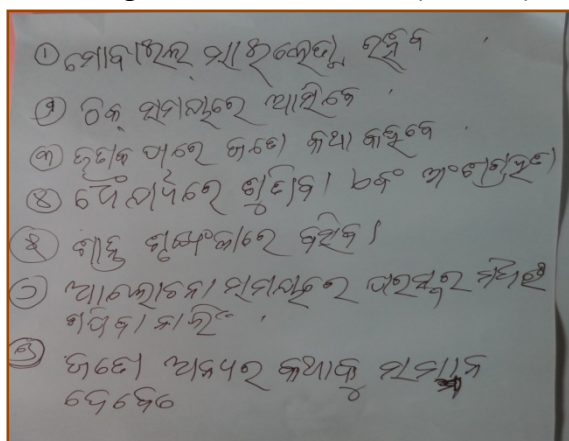 ① ମୋବାଇଲ ସାଇଲେଣ୍ଟ ରହିବ
② ଠିକ୍ ସମୟରେ ଆସିବେ
③ ଜଣକ ପରେ ଜଣେ କଥା କହିବେ
④ ଧୈର୍ଯ୍ୟରେ ଶୁଣିବା ଏବଂ ଅଂଶଗ୍ରହଣ
⑤ ଶାନ୍ତ ଶୃଙ୍ଖଳାରେ ବସିବା
⑥ ଆଲୋଚନା ସମୟରେ ପରସ୍ପର
ନାହିଁ
ଜଣେ ଅନ୍ୟର କଥାକୁ ସମ୍ମାନ
ଦେବେ